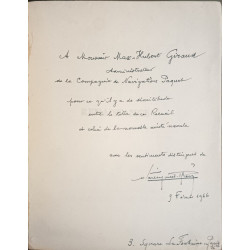 A Monsieur Max-Hubert Giraud
Administrateur
de la Compagnie de Navigation Paquet
pour ce qu'il y a de
entre le titre de ce Recueil
et celui de la
avec les sentiments distingués de
9 Février
3. Square La Fontaine Paris